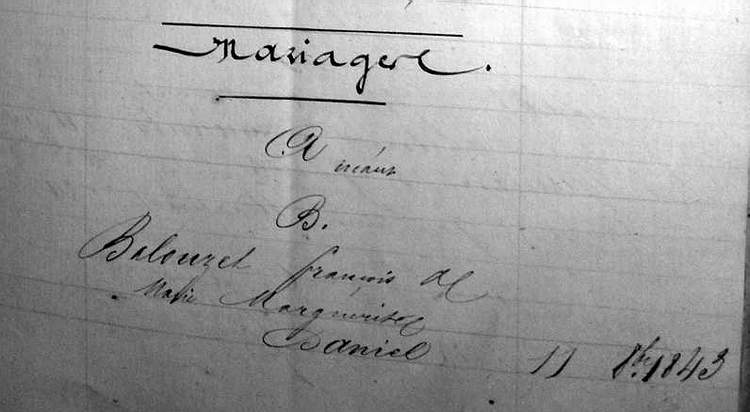 Mariages.
A néant
B.
Balouzet françois et
Marie Marguerite
Daniel 11 8bre 1843